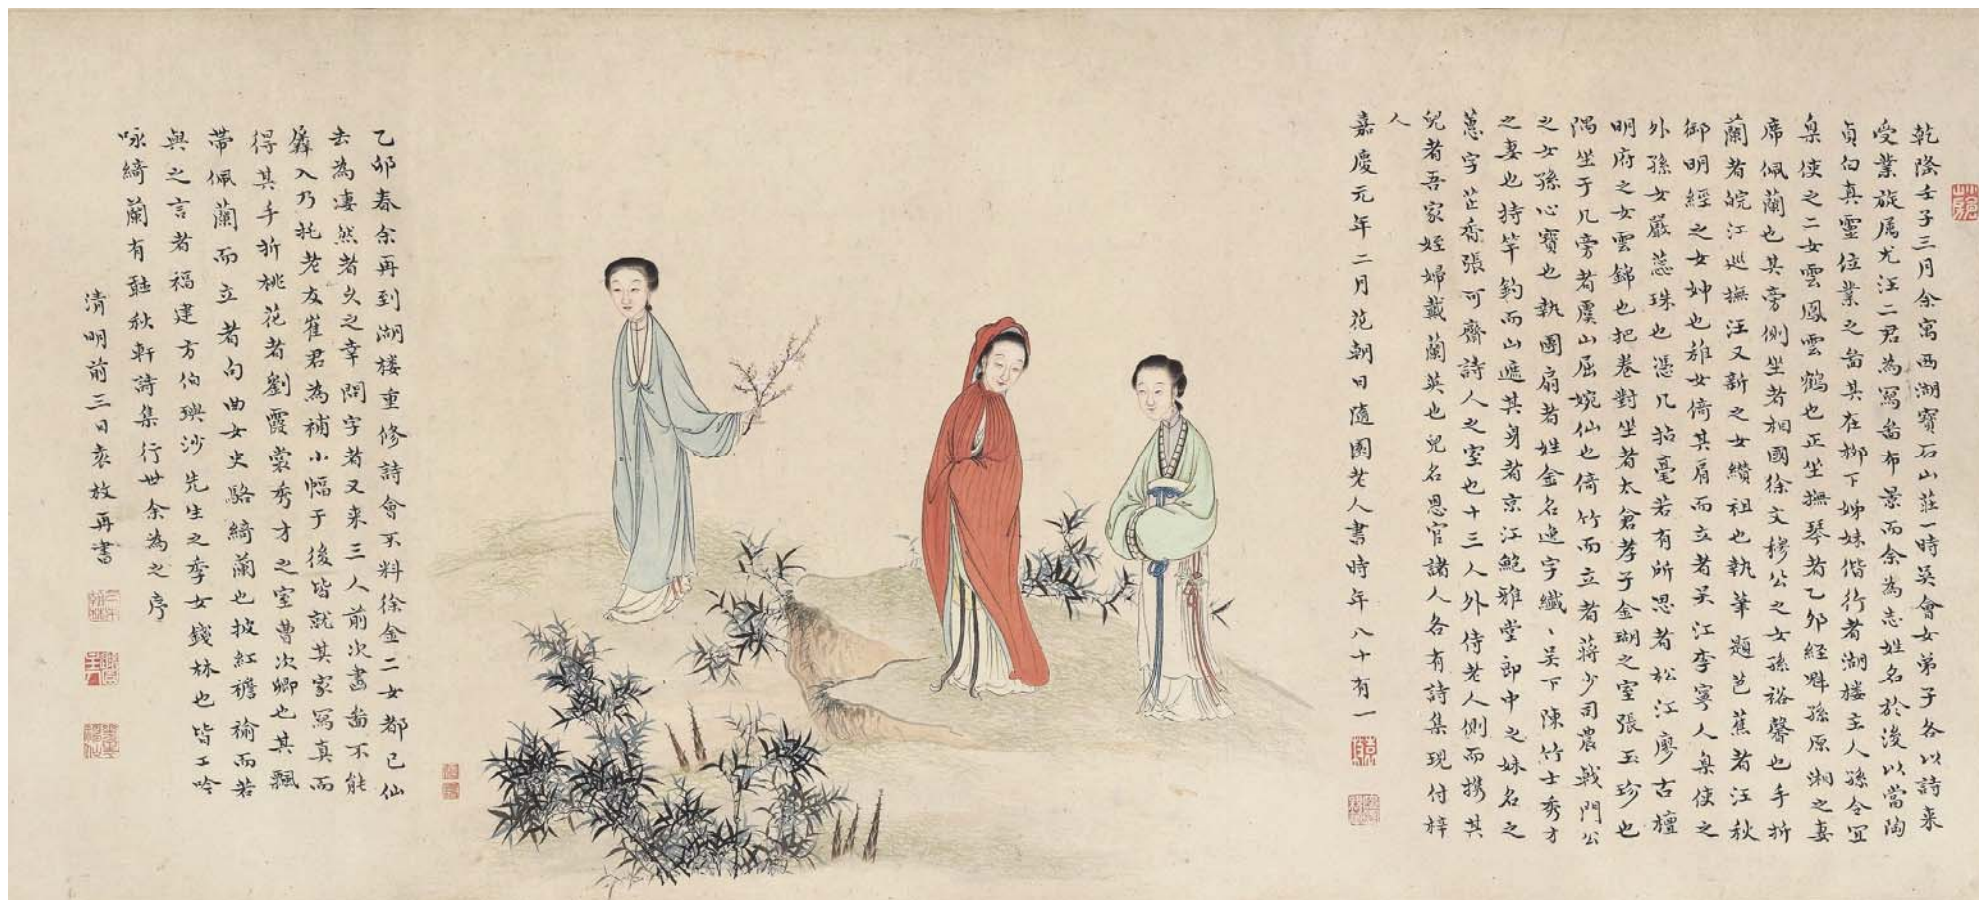 乾隆壬子三月余寓西湖寶石山莊一時吳會女弟子各以詩来
受業旋属尤汪二君為寫啚布景而余為志姓名於後以當陶
貞白真靈位業之啚其在柳下姊妹偕行者湖樓主人孫令宜
臬使之二女雲鳳雲鶴也正坐撫琴者乙卯經魁孫原湘之妻
席佩蘭也其旁側坐者相國徐文穆公之女孫裕馨也手折
蘭者皖江巡撫汪又新之女纘祖也執筆題芭蕉者汪秋
御明經之女妕也稚女倚其肩而立者吴江李寧人臬使之
外孫女嚴蕊珠也憑几拈毫若有所思者松江廖古檀
明府之女雲錦也把卷對坐者太倉孝子金瑚之室張玉珍也
隅坐于几旁者虞山屈婉仙也倚竹而立者蔣少司農戟門公
之女孫心寶也執團扇者姓金名逸字纖、吴下陳竹士秀才
之妻也持竿釣而山遮其身者京江鮑雅堂郎中之妹名之
蕙字芷香張可齋詩人之室也十三人外侍老人側而携其
兒者吾家姪婦戴蘭英也兒名恩官諸人各有詩集現付梓
人
嘉慶元年二月花朝日隨園老人書時年八十有一
乙卯春余再到湖樓重修詩會不料徐金二女都已仙
去為凄然者久之幸問字者又来三人前次畫啚不能
羼入乃托老友崔君為補小幅于後皆就其家寫真而
得其手折桃花者劉霞裳秀才之室曹次卿也其飄
帶佩蘭而立者句曲女史駱綺蘭也披紅襜褕而若
與之言者福建方伯璵沙先生之季女錢林也皆工吟
咏綺蘭有聽秋軒詩集行世余為之序
清明前三日袁枚再書